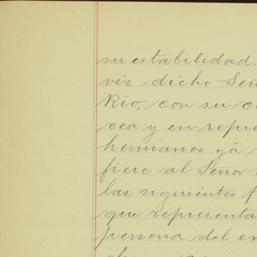 su estabilidad
vez dicho Señ
Rio, con su c
cea y en repre
hermanos ya
fiere al Señor
las siguientes f
que representa
persona del ex